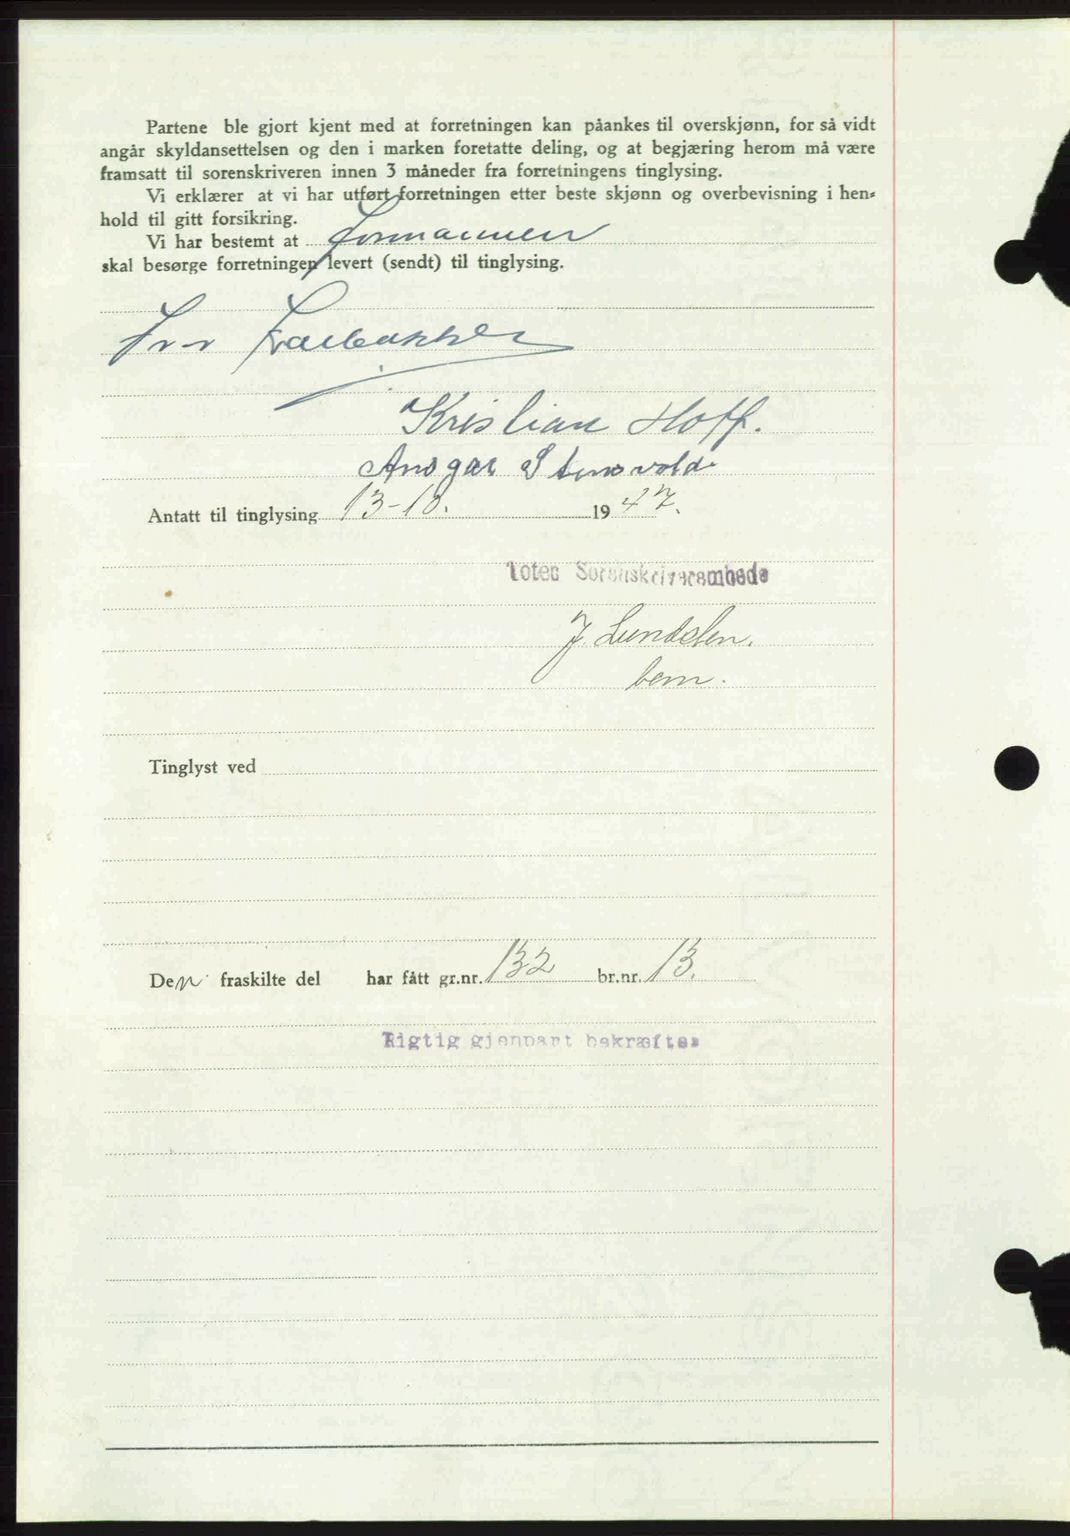 Partene ble gjort kjent med at forretningen kan påankes til overskjønn, for så vidt
angår skyldansettelsen og den i marken foretatte deling, og at begjæring herom må være
framsatt til sorenskriveren innen 3 måneder fra forretningens tinglysing.
Vi erklærer at vi har utført forretningen etter beste skjønn og overbevisning i hen-
hold til gitt forsikring.
Vi har bestemt at formannen
skal besørge forretningen levert (sendt) til tinglysing.
Kristian Hoff.
Ansgar Stensvold
Antatt til tinglysing 13-10. 1947.
Toten Sorenskriverembede
J. Lundsten.
bem.
Tinglyst ved
Den fraskilte del har fått gr.nr. 132 br.nr. 13.
Rigtig gjenpart bekræftes